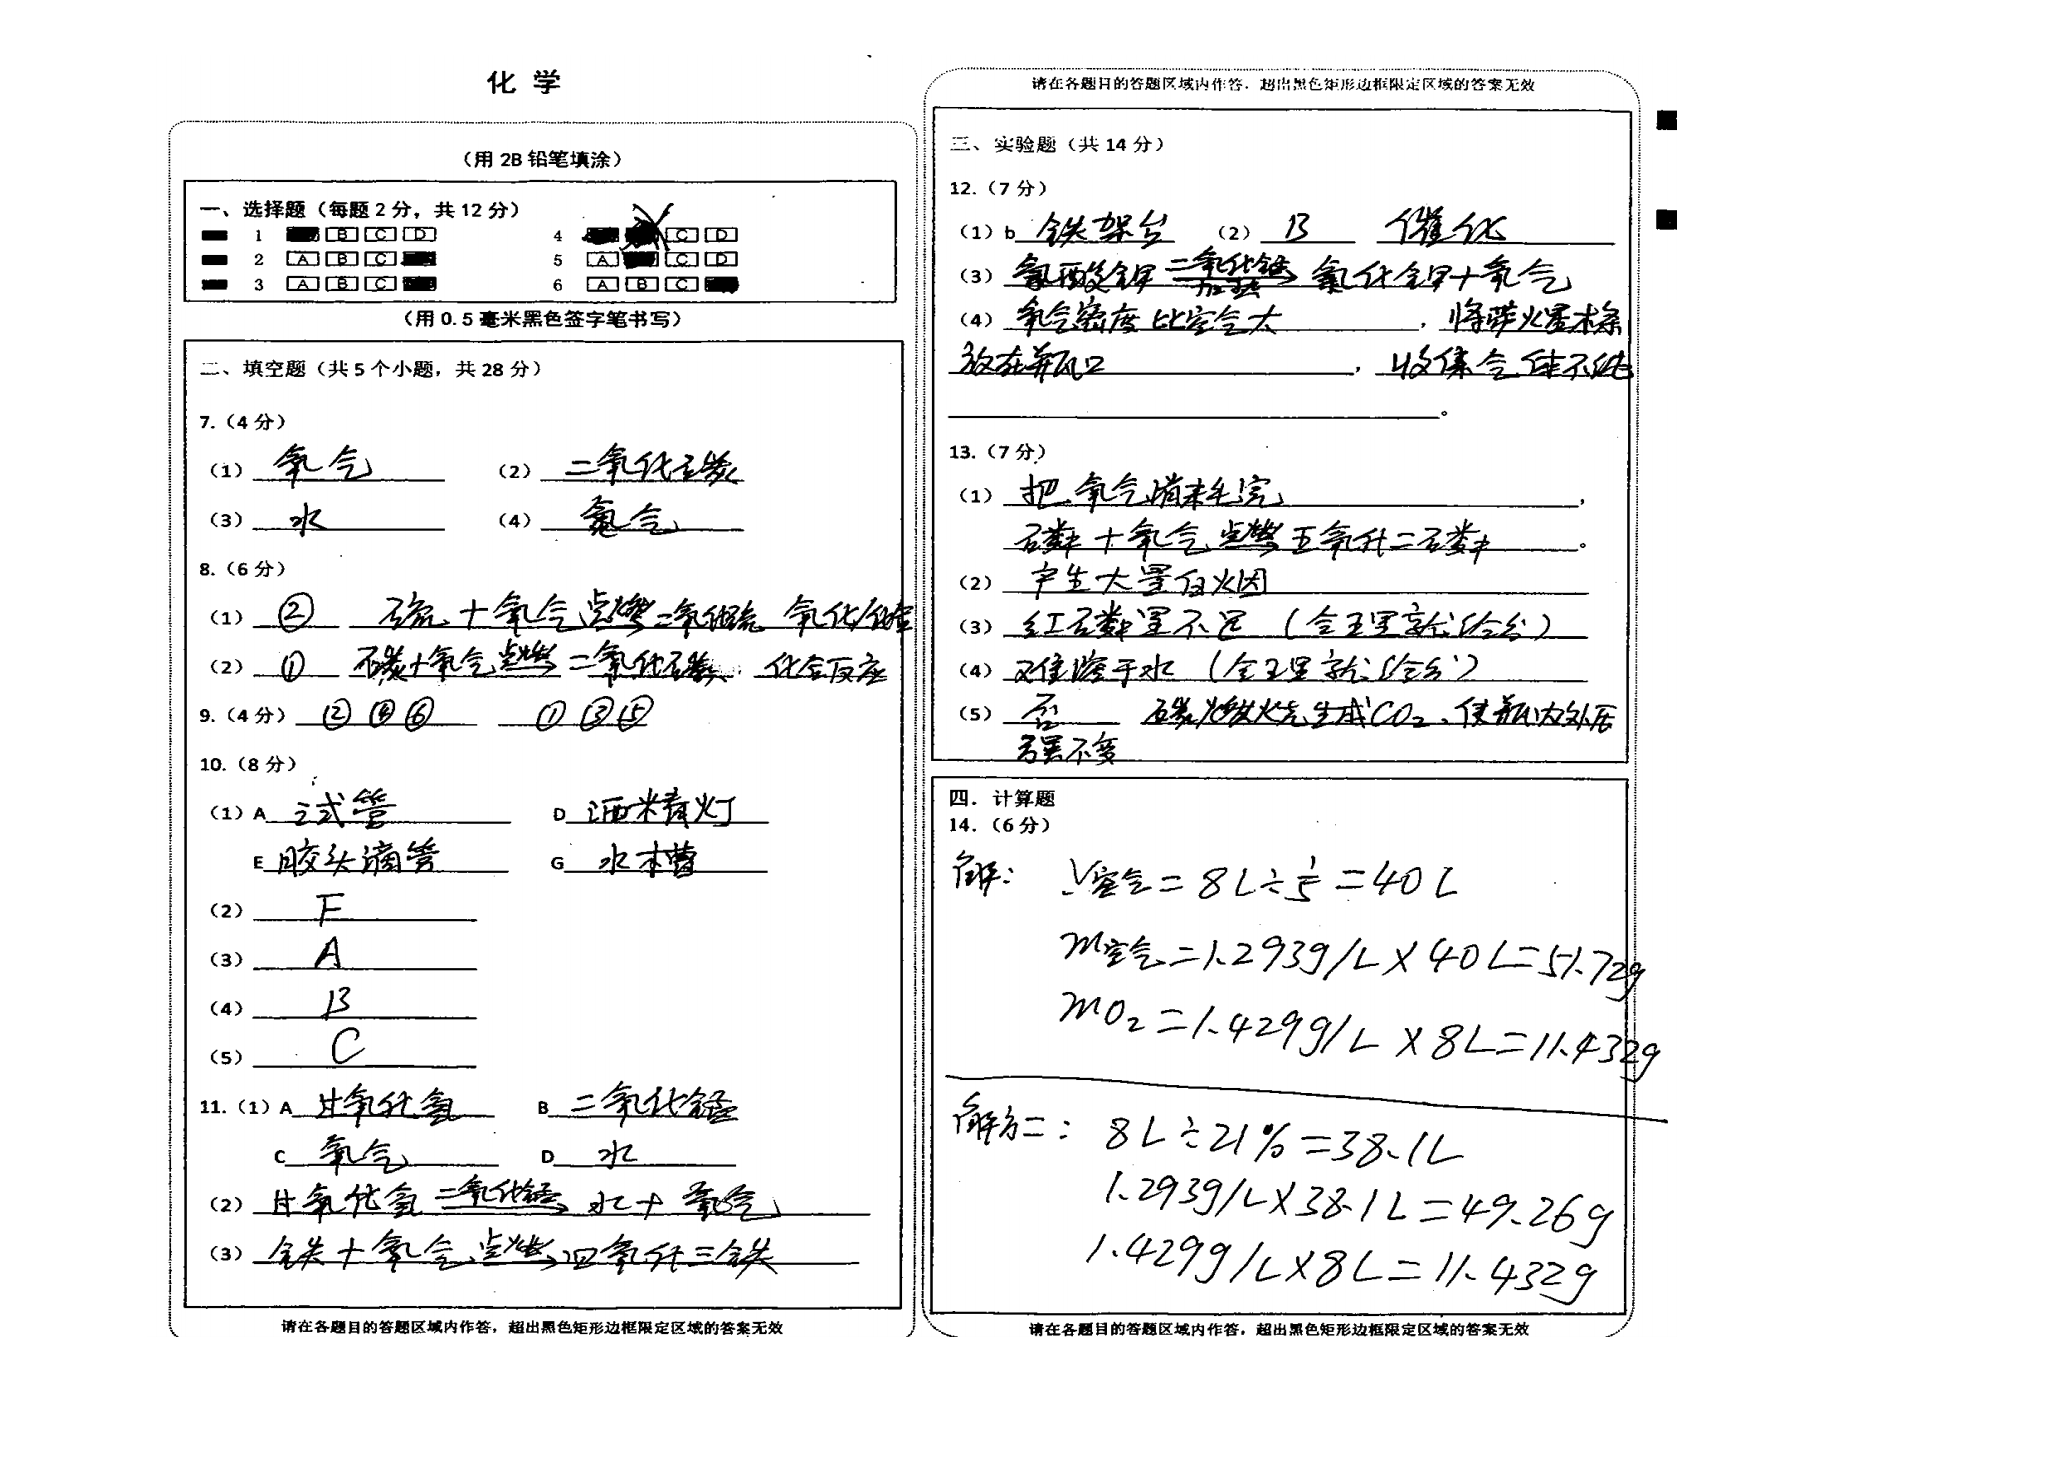 化 学
（用 2B 铅笔填涂）
一、选择题（每题 2 分，共 12 分）
1 B C D 4 C D
2 A B C 5 A C D
3 A B C 6 A B C
（用 0.5 毫米黑色签字笔书写）
二、填空题（共 5 个小题，共 28 分）
7.（4 分）
（1） 氧气 （2） 二氧化碳
（3） 水 （4） 氮气
8.（6 分）
（1） ② 硫+氧气 点燃 二氧化硫 氧化
（2） ① 碳+氧气 点燃 二氧化碳 化合反应
9.（4 分） ②④⑥ ①③⑤
10.（8 分）
（1）A 试管 D 酒精灯
E 胶头滴管 G 水槽
（2） F
（3） A
（4） B
（5） C
11.（1）A 过氧化氢 B 二氧化锰
C 氧气 D 水
（2） 过氧化氢 二氧化锰 水+氧气
（3） 铁+氧气 点燃 四氧化三铁
请在各题目的答题区域内作答，超出黑色矩形边框限定区域的答案无效
请在各题目的答题区域内作答，超出黑色矩形边框限定区域的答案无效
三、实验题（共 14 分）
12.（7 分）
（1）b 铁架台 （2） B 催化
（3） 氯酸钾 二氧化锰 加热 氯化钾+氧气
（4） 氧气密度比空气大 ，将带火星木条
放在瓶口 ，收集气体不纯
。
13.（7 分）
（1） 把氧气消耗完 ，
磷+氧气 点燃 五氧化二磷 。
（2） 产生大量白烟
（3） 红磷量不足（合理就给分）
（4） 难溶于水（合理就给分）
（5） 否 碳燃烧生成CO₂、使瓶内外压
强不变
四．计算题
14.（6 分）
解： V空气=8L÷1/5=40L
m空气=1.293g/L×40L=51.72g
mO₂=1.429g/L×8L=11.432g
解方二： 8L÷21%=38.1L
1.293g/L×38.1L=49.26g
1.429g/L×8L=11.432g
请在各题目的答题区域内作答，超出黑色矩形边框限定区域的答案无效